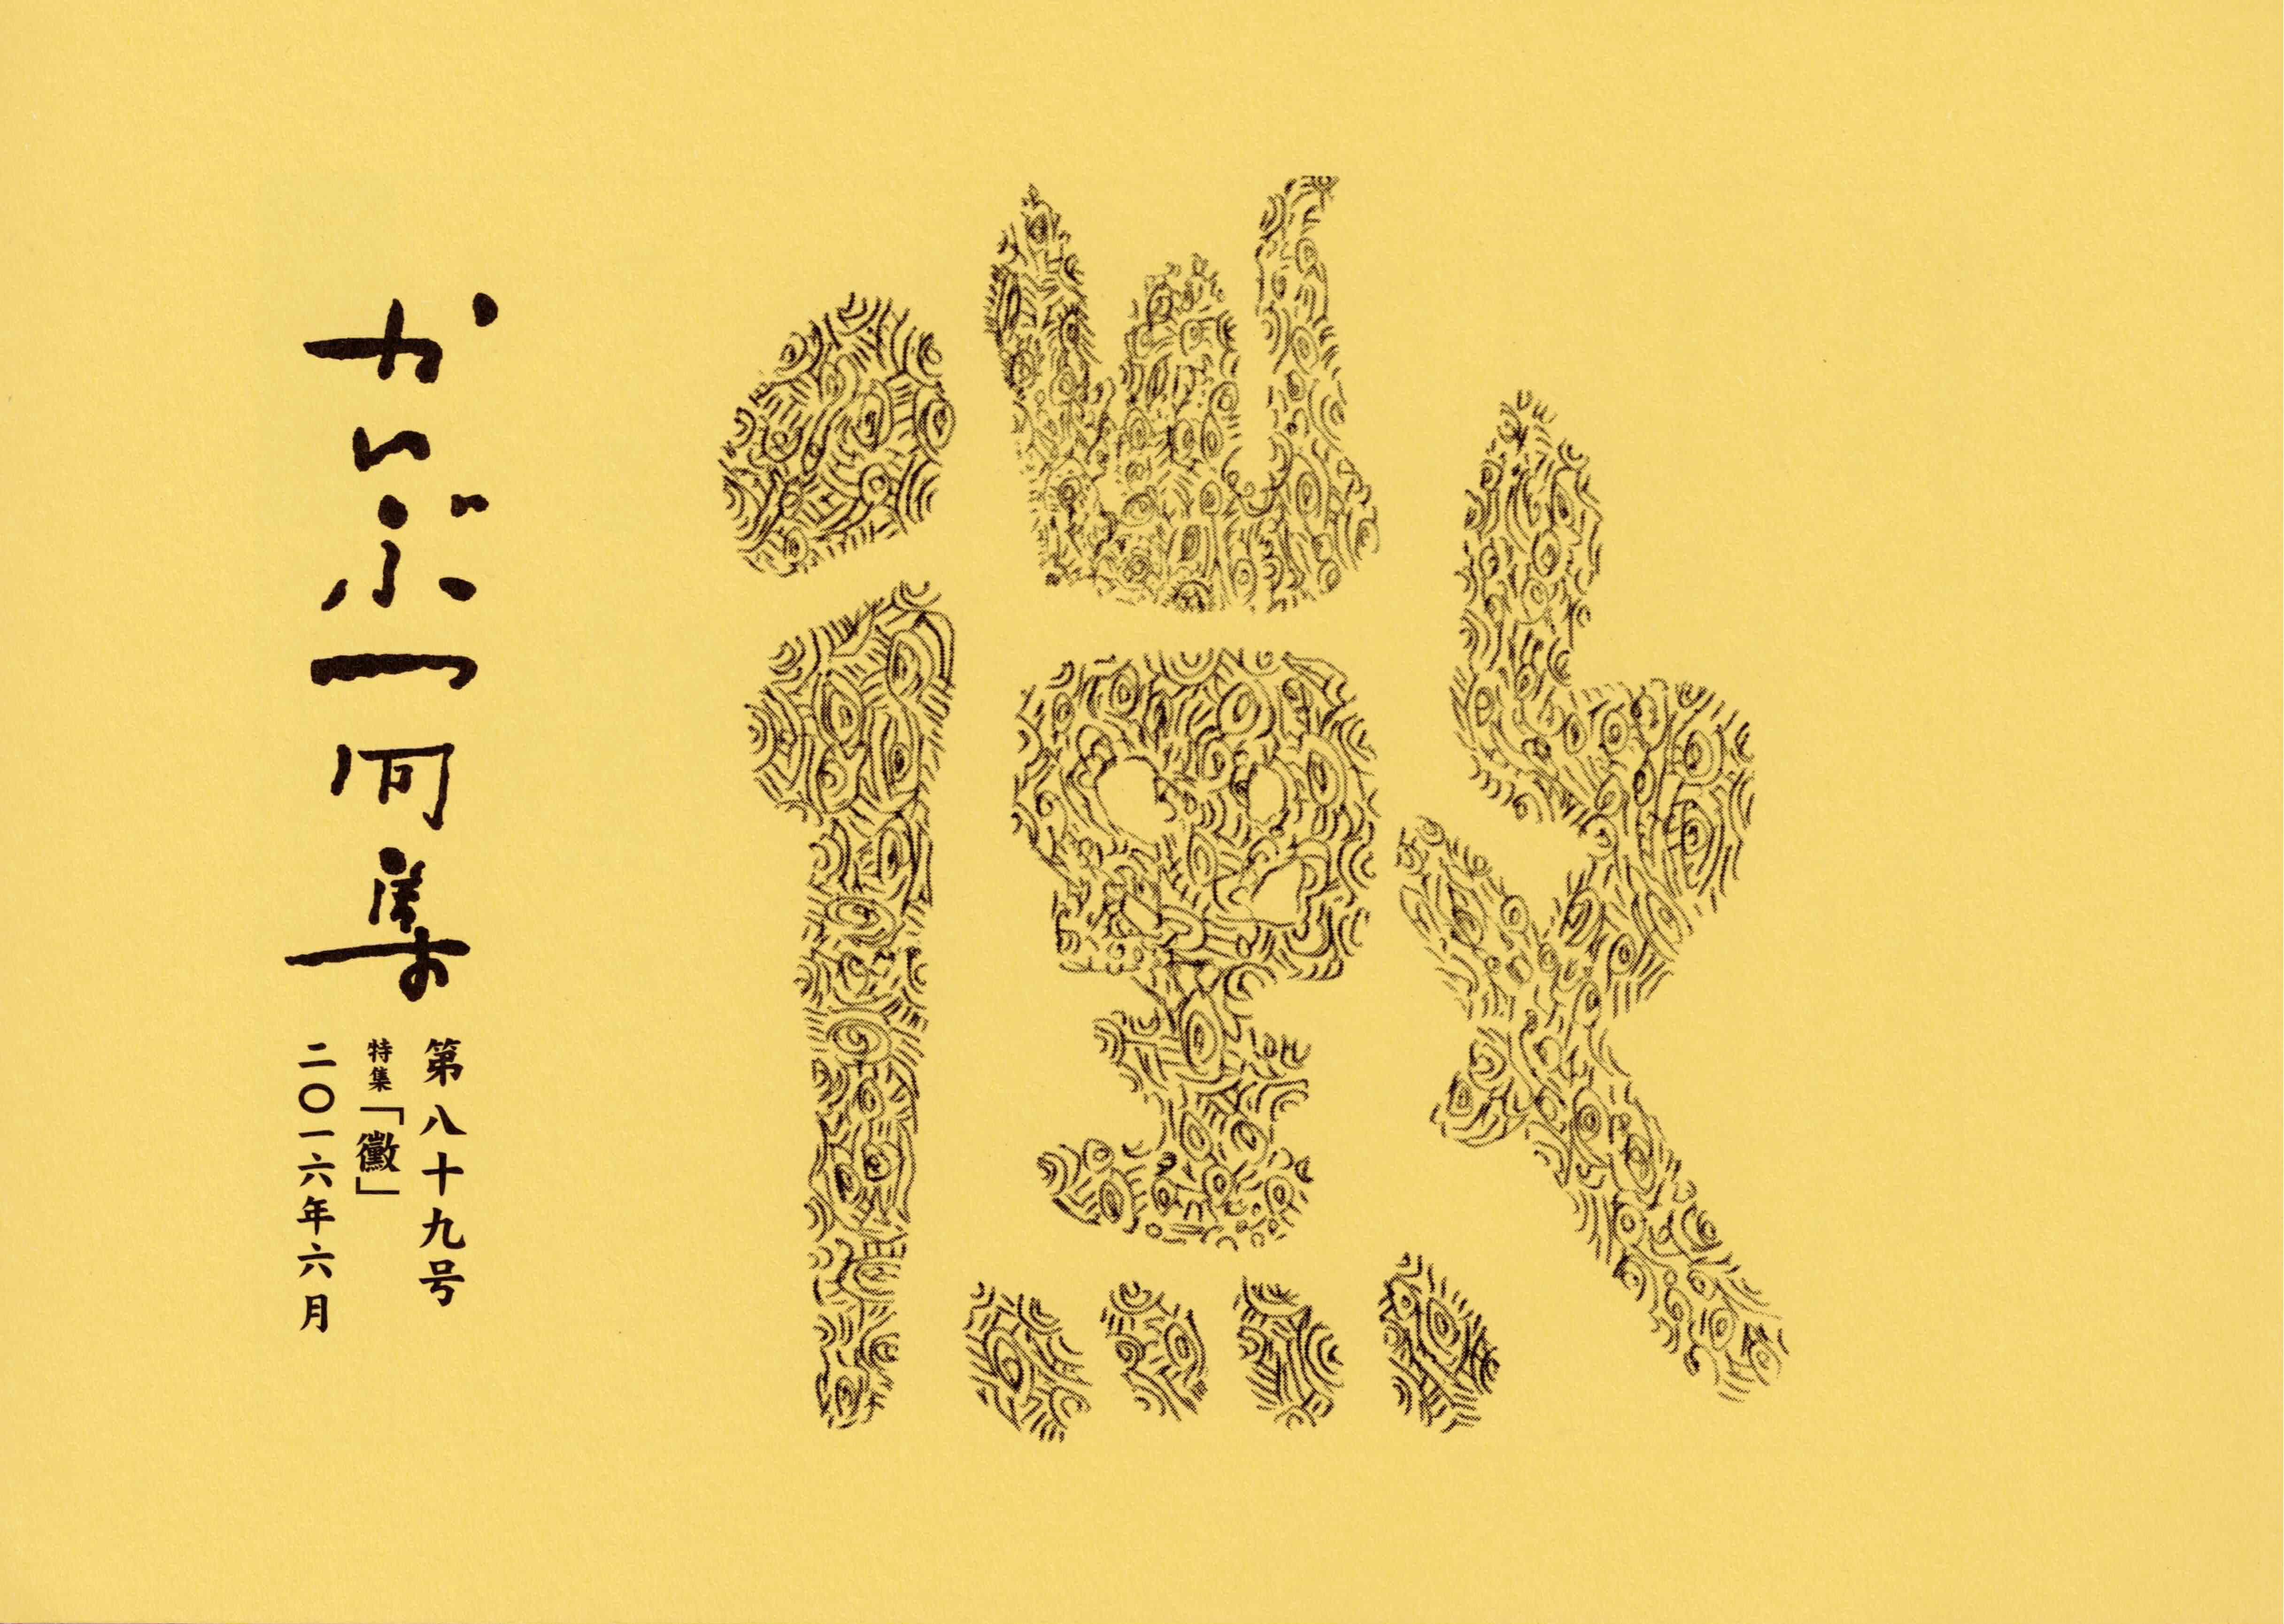 黴
かいぶつ句集
第八十九号
特集「黴」
二〇一六年六月